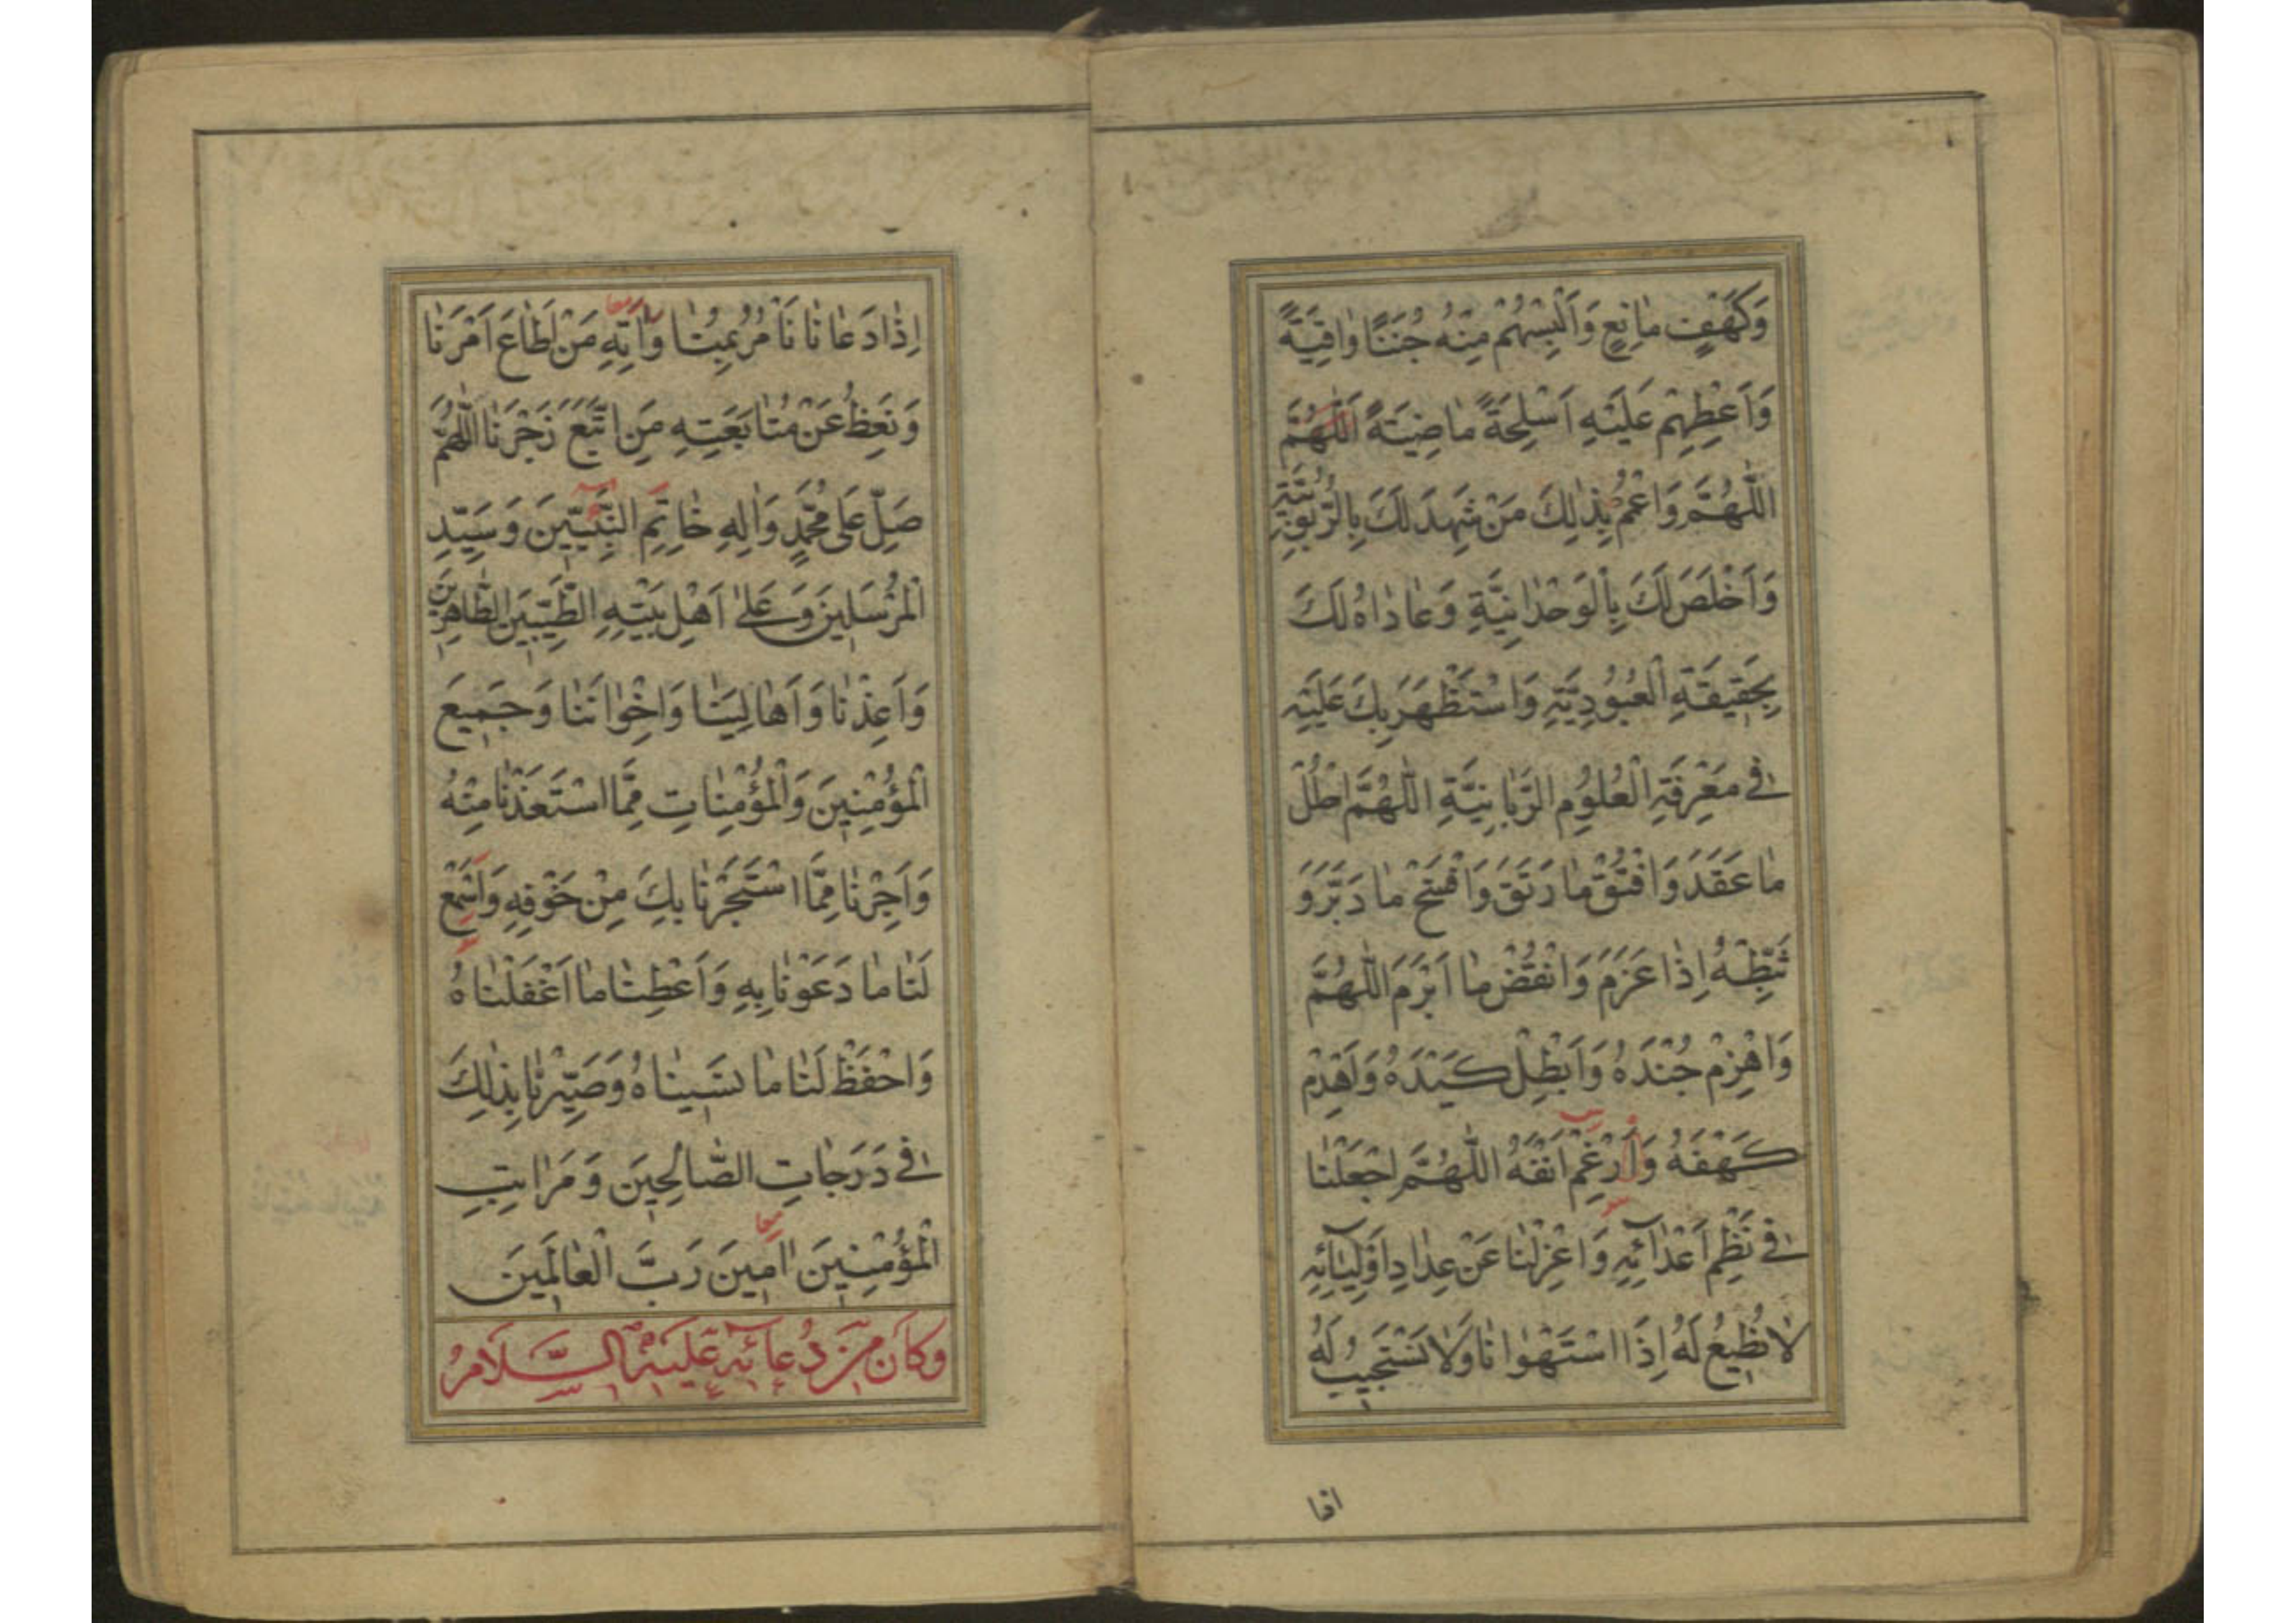 وَكَهْفٍ مٰانِعٍ وَأَلْبِسْهُمْ مِنْهُ جُنَنًا وٰاقِيَةً
وَاَعْطِهِمْ عَلَيْهِ اَسْلِحَةً مٰاضِيَةً اَللّٰهُمَّ
اللّٰهُمَّ وَاعْمُمْ بِذٰلِكَ مَنْ شَهِدَ لَكَ بِالرُّبُوبِيَّةِ
وَاَخْلَصَ لَكَ بِالْوَحْدٰانِيَّةِ وَعٰادٰاهُ لَكَ
بِحَقِيقَةِ الْعُبُودِيَّةِ وَاسْتَظْهَرَ بِكَ عَلَيْهِ
فِي مَعْرِفَةِ الْعُلُومِ الرَّبّٰانِيَّةِ اللّٰهُمَّ احْلُلْ
مٰا عَقَدَ وَافْتُقْ مٰا رَتَقَ وَافْسَخْ مٰا دَبَّرَ وَ
ثَبِّطْهُ اِذٰا عَزَمَ وَانْقُضْ مٰا اَبْرَمَ اللّٰهُمَّ
وَاهْزِمْ جُنْدَهُ وَاَبْطِلْ كَيْدَهُ وَاهْدِمْ
كَهْفَهُ وَاَرْغِمْ اَنْفَهُ اللّٰهُمَّ اجْعَلْنٰا
فِي نَظْمِ اَعْدٰآئِهِ وَاعْزِلْنٰا عَنْ عِدٰادِ اَوْلِيٰآئِهِ
لٰا نُطِيعُ لَهُ اِذَا اسْتَهْوٰانٰا وَلٰا نَسْتَجِيبُ لَهُ
اذا
اِذٰا دَعٰانٰا نَأْمُرُ بِمُنٰاوٰاتِهِ مَنْ اَطٰاعَ اَمْرَنٰا
وَنَعِظُ عَنْ مُتٰابَعَتِهِ مَنِ اتَّبَعَ زَجْرَنٰا اللّٰهُمَّ
صَلِّ عَلٰى مُحَمَّدٍ وَاٰلِهِ خٰاتِمِ النَّبِيِّينَ وَسَيِّدِ
الْمُرْسَلِينَ وَعَلٰى اَهْلِ بَيْتِهِ الطَّيِّبِينَ الطّٰاهِرِينَ
وَاَعِذْنٰا وَاَهٰالِيَنٰا وَاِخْوٰانَنٰا وَجَمِيعَ
الْمُؤْمِنِينَ وَالْمُؤْمِنٰاتِ مِمَّا اسْتَعَذْنٰا مِنْهُ
وَاَجِرْنٰا مِمَّا اسْتَجَرْنٰا بِكَ مِنْ خَوْفِهِ وَاسْمَعْ
لَنٰا مٰا دَعَوْنٰا بِهِ وَاَعْطِنٰا مٰا اَغْفَلْنٰاهُ
وَاحْفَظْ لَنٰا مٰا نَسِينٰاهُ وَصَيِّرْنٰا بِذٰلِكَ
فِي دَرَجٰاتِ الصّٰالِحِينَ وَمَرٰاتِبِ
الْمُؤْمِنِينَ اٰمِينَ رَبَّ الْعٰالَمِينَ
وَكَانَ مِنْ دُعَآئِهِ عَلَيْهِ السَّلَامُ